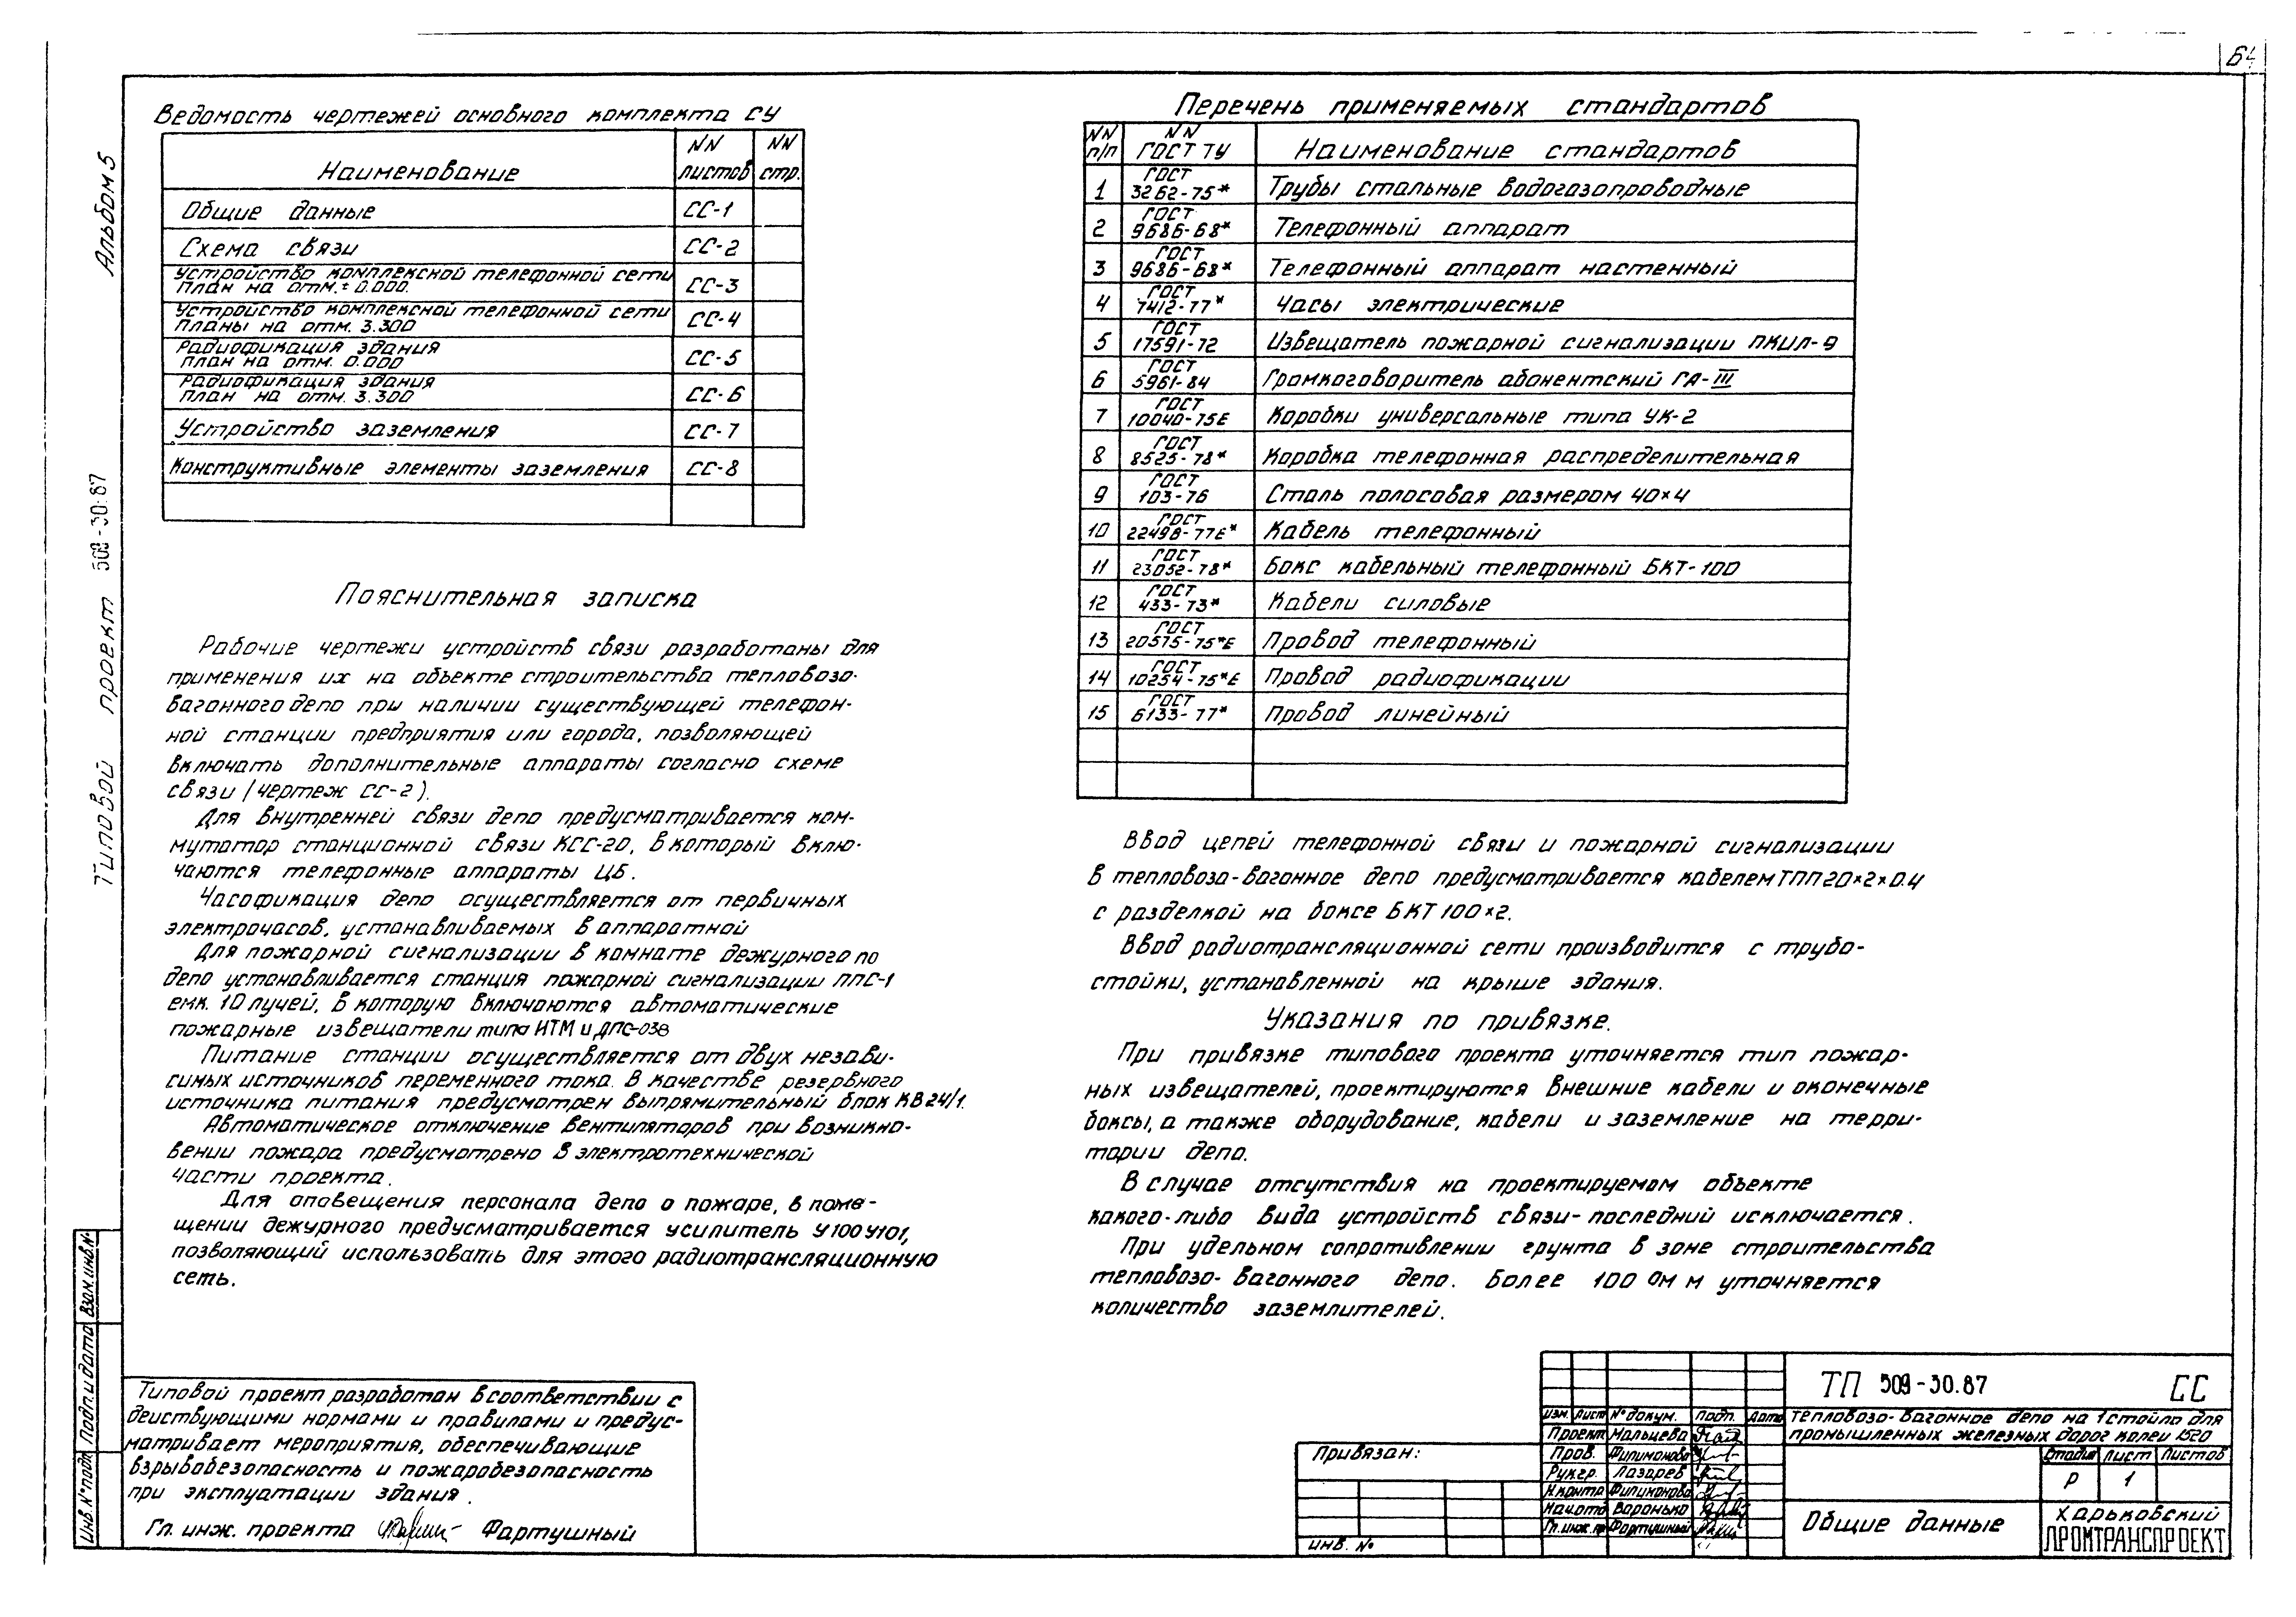 64
Альбом 5
Типовой проект 509-30.87
Ведомость чертежей основного комплекта СУ
Наименование | NN листов | NN стр.
Общие данные | СС-1
Схема связи | СС-2
Устройство комплексной телефонной сети
План на отм. ± 0.000. | СС-3
Устройство комплексной телефонной сети
Планы на отм. 3.300 | СС-4
Радиофикация здания
План на отм. 0.000 | СС-5
Радиофикация здания
План на отм. 3.300 | СС-6
Устройство заземления | СС-7
Конструктивные элементы заземления | СС-8
Пояснительная записка
Рабочие чертежи устройств связи разработаны для
применения их на объекте строительства тепловозо-
вагонного депо при наличии существующей телефон-
ной станции предприятия или города, позволяющей
включать дополнительные аппараты согласно схеме
связи (чертеж СС-2).
Для внутренней связи депо предусматривается ком-
мутатор станционной связи КСС-20, в который вклю-
чаются телефонные аппараты ЦБ.
Часофикация депо осуществляется от первичных
электрочасов, устанавливаемых в аппаратной
Для пожарной сигнализации в комнате дежурного по
депо устанавливается станция пожарной сигнализации ППС-1
емк. 10 лучей, в которую включаются автоматические
пожарные извещатели типа ИТМ и ДПС-038
Питание станции осуществляется от двух незави-
симых источников переменного тока. В качестве резервного
источника питания предусмотрен выпрямительный блок КВ 24/1.
Автоматическое отключение вентиляторов при возникно-
вении пожара предусмотрено в электротехнической
части проекта.
Для оповещения персонала депо о пожаре, в поме-
щении дежурного предусматривается усилитель У100У101,
позволяющий использовать для этого радиотрансляционную
сеть.
Типовой проект разработан в соответствии с
действующими нормами и правилами и предус-
матривает мероприятия, обеспечивающие
взрывобезопасность и пожаробезопасность
при эксплуатации здания.
Гл. инж. проекта Фартушный
Инв. N° подл. Подп. и дата Взам. инв. N°
Перечень применяемых стандартов
NN п/п | NN ГОСТ ТУ | Наименование стандартов
1 | ГОСТ 3262-75* | Трубы стальные водогазопроводные
2 | ГОСТ 9686-68* | Телефонный аппарат
3 | ГОСТ 9686-68* | Телефонный аппарат настенный
4 | ГОСТ 7412-77* | Часы электрические
5 | ГОСТ 17591-72 | Извещатель пожарной сигнализации ПКИЛ-9
6 | ГОСТ 5961-84 | Громкоговоритель абонентский ГА-III
7 | ГОСТ 10040-75Е | Коробки универсальные типа УК-2
8 | ГОСТ 8525-78* | Коробка телефонная распределительная
9 | ГОСТ 103-76 | Сталь полосовая размером 40×4
10 | ГОСТ 22498-77Е* | Кабель телефонный
11 | ГОСТ 23052-78* | Бокс кабельный телефонный БКТ-100
12 | ГОСТ 433-73* | Кабели силовые
13 | ГОСТ 20575-75*Е | Провод телефонный
14 | ГОСТ 10254-75*Е | Провод радиофикации
15 | ГОСТ 6133-77* | Провод линейный
Ввод цепей телефонной связи и пожарной сигнализации
в тепловозо-вагонное депо предусматривается кабелем ТПП 20×2×0.4
с разделкой на боксе БКТ 100×2.
Ввод радиотрансляционной сети производится с трубо-
стойки, установленной на крыше здания.
Указания по привязке.
При привязке типового проекта уточняется тип пожар-
ных извещателей, проектируются внешние кабели и оконечные
боксы, а также оборудование, кабели и заземление на терри-
тории депо.
В случае отсутствия на проектируемом объекте
какого-либо вида устройств связи-последний исключается.
При удельном сопротивлении грунта в зоне строительства
тепловозо-вагонного депо. Более 100 Ом м уточняется
количество заземлителей.
Привязан:
Инв. N°
Изм. Лист N° докум. Подп. Дата
Проект Мальцева
Пров. Филимонова
Рук.гр. Лазарев
Н.контр Филимонова
Нач.отд Воронько
Гл.инж.пр Фартушный
ТП 509-30.87 СС
Тепловозо-вагонное депо на 1 стойло для
промышленных железных дорог колеи 1520
Стадия Лист Листов
Р 1
Общие данные
Харьковский
ПРОМТРАНСПРОЕКТ